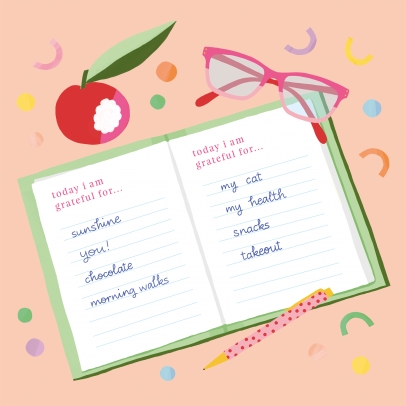 today i am
grateful for...
sunshine
you!
chocolate
morning walks
today i am
grateful for...
my cat
my health
snacks
takeout